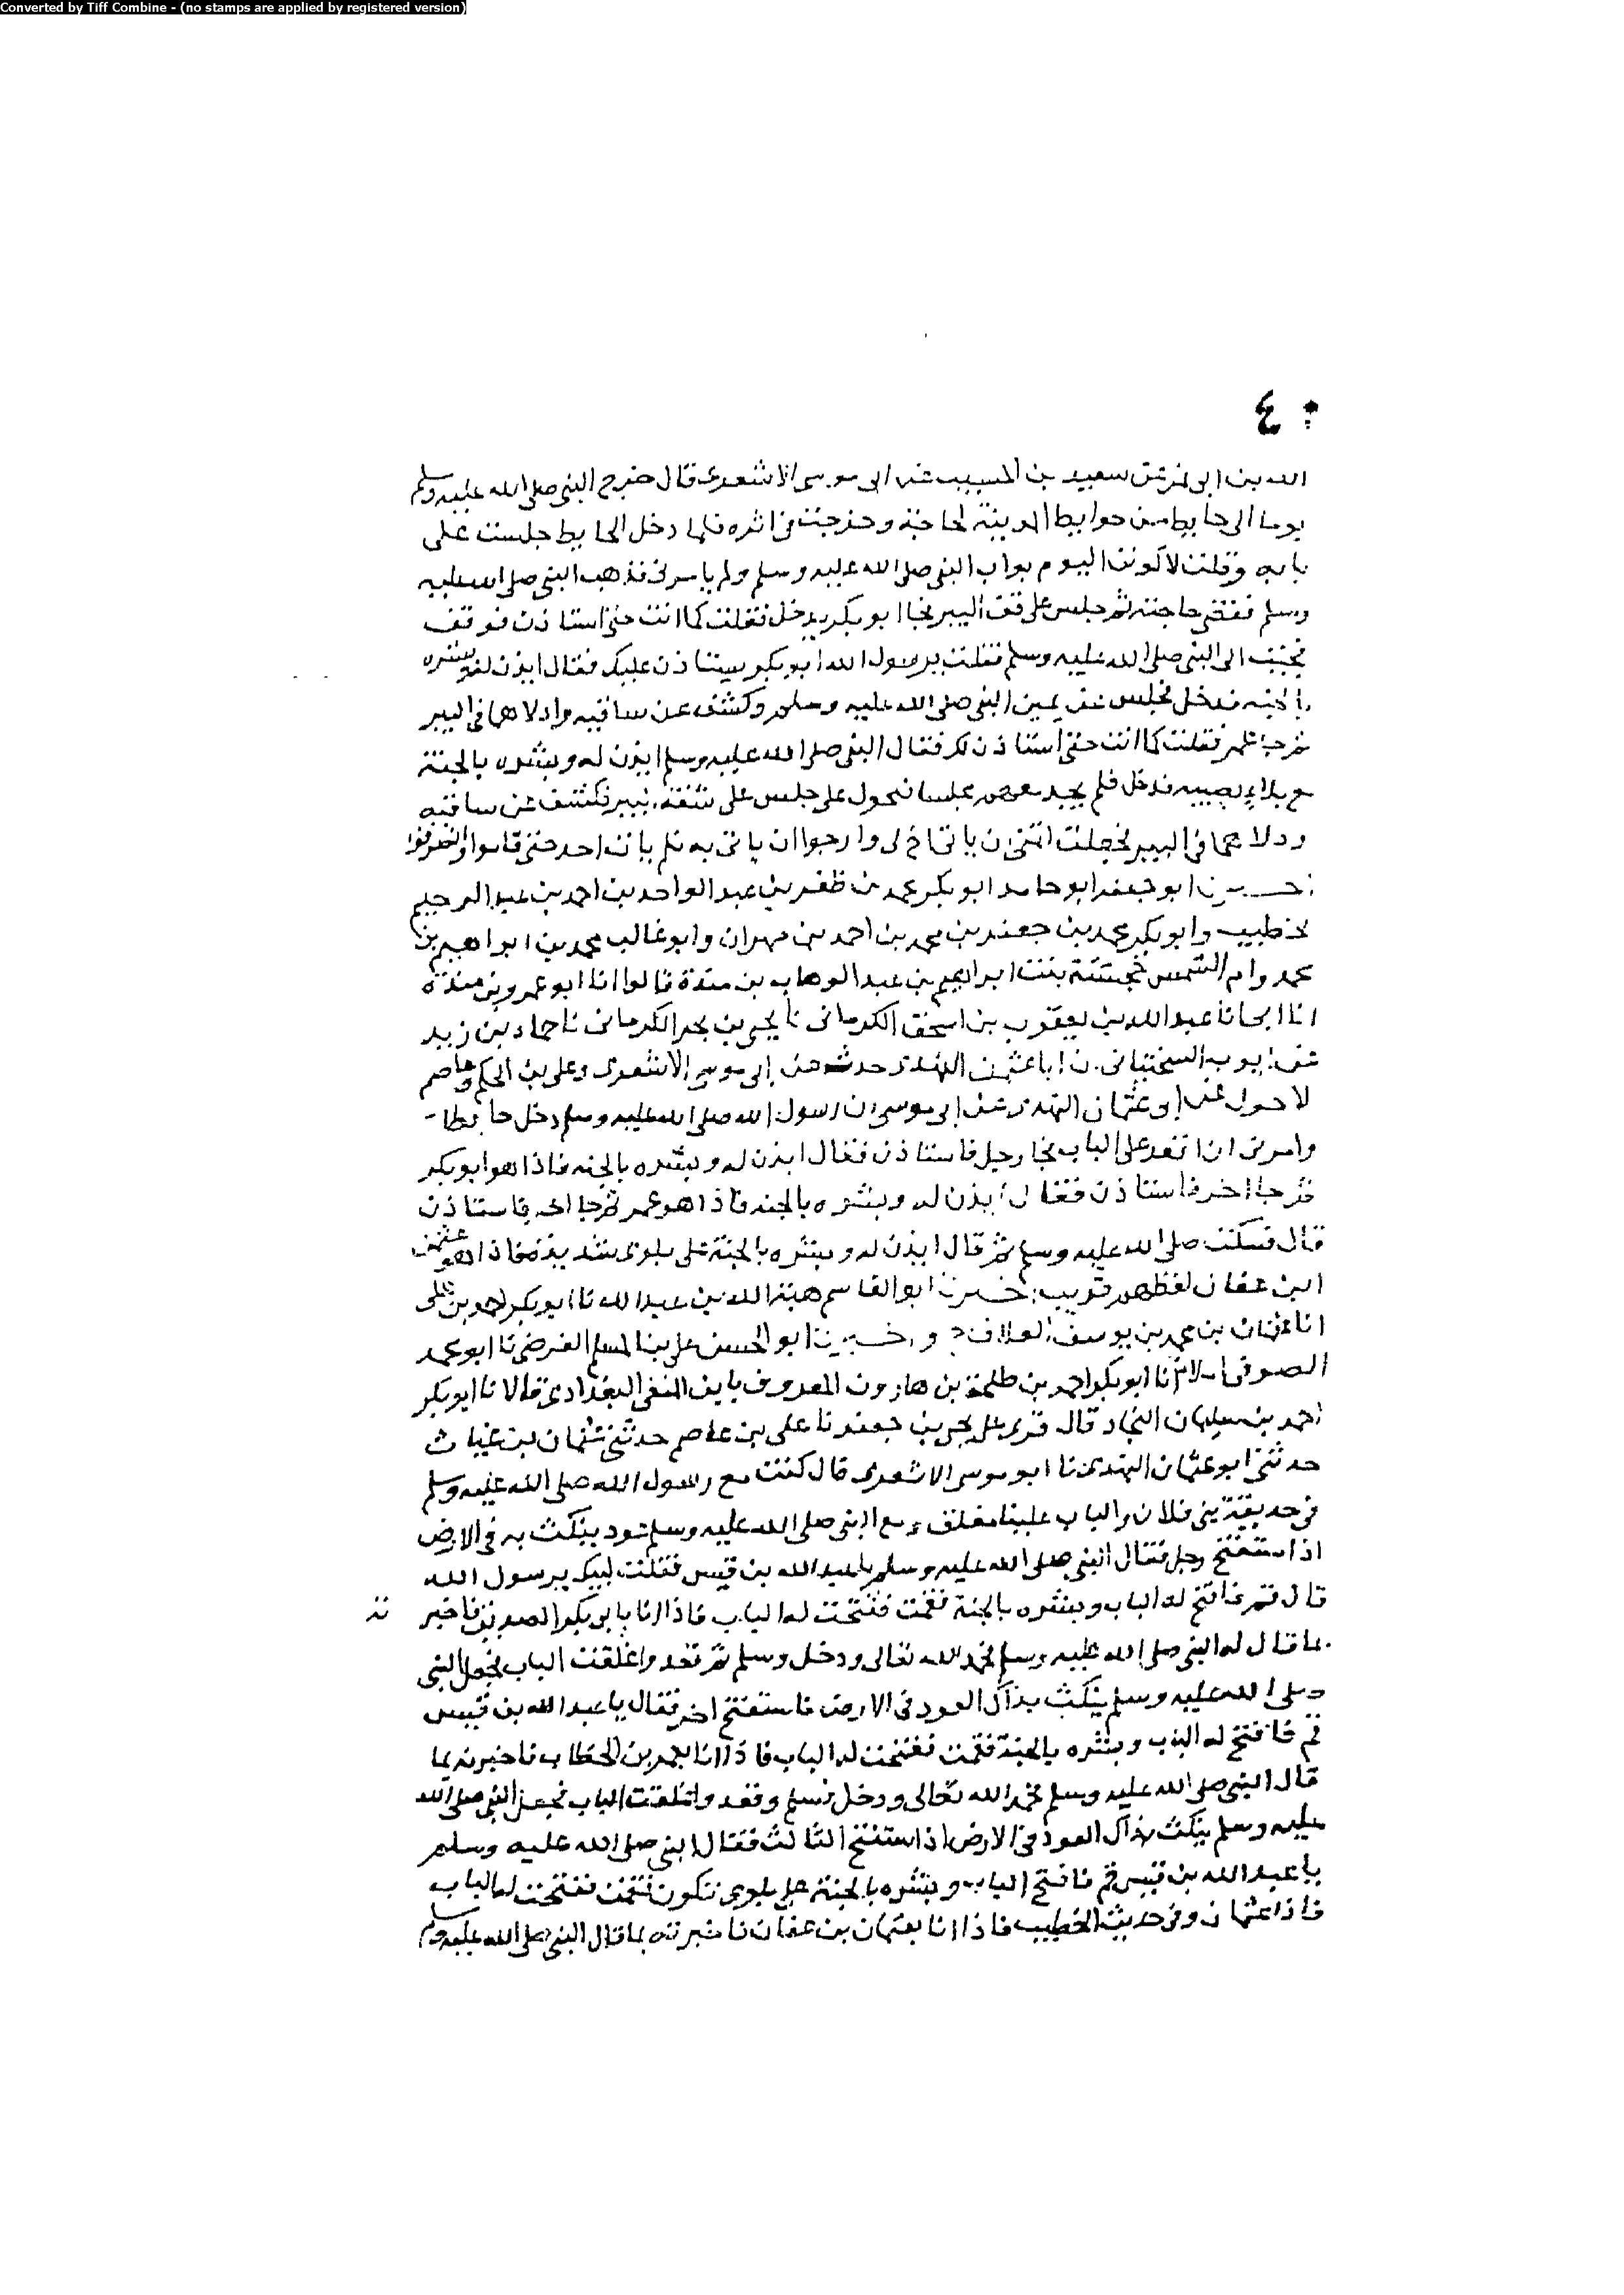 Converted by Tiff Combine - (no stamps are applied by registered version)
٤٠
الله بن ابي نمر عن سعيد بن المسيب عن ابي موسى الاشعري قال خرج النبي صلى الله عليه وسلم
يوما الى حايط من حوايط المدينة لحاجته وخرجت في اثره فلما دخل الحايط جلست على
بابه وقلت لاكونن اليوم بواب النبي صلى الله عليه وسلم ولم يامرني فذهب النبي صلى الله عليه
وسلم فقضى حاجته ثم جلس على قف البير فجا ابو بكر يدخل فقلت كما انت حتى استاذن فوقف
فجيت الى النبي صلى الله عليه وسلم فقلت يرسول الله ابو بكر يستاذن عليك فقال ايذن له وبشره
بالجنه فدخل فجلس عن يمين النبي صلى الله عليه وسلم وكشف عن ساقيه وادلاهما في البير
ثم جا عمر فقلت كما انت حتى استاذن لك فقال النبي صلى الله عليه وسلم ايذن له وبشره بالجنة
مع بلاء يصيبه فدخل فلم يجد معهم مجلسا فتحول على جلس على شفة البير فكشف عن ساقيه
ودلاهما في البير فجعلت اتمنى ان ياتي اخ لي وارجوا ان ياتي به فلم يات احد حتى قاموا وانصرفوا
ابو جعفر ابو حامد ابو بكر محمد بن ظفر بن عبد الواحد بن احمد بن عبد الرحيم
لخطيب وابو بكر محمد بن جعفر بن محمد بن احمد بن مهران وابو غالب محمد بن ابراهيم بن
محمد وام الشمس خجستة بنت ابراهيم بن عبد الوهاب بن مندة قالوا انا ابو عمرو بن مندة
انا ابي انا عبد الله بن يعقوب بن اسحق الكرماني نا يحيى بن بحر الكرماني نا حماد بن زيد
عن ايوب السختياني ان ابا عثمن النهدي حدثه عن ابي موسى الاشعري وعلي بن الحكم وعاصم
لاحول عن ابي عثمان النهدي عن ابي موسى ان رسول الله صلى الله عليه وسلم دخل حايطا
وامرني ان اقعد على الباب فجا رجل فاستاذن فقال ايذن له وبشره بالجنه فاذا هو ابو بكر
ثم جا اخر فاستاذن فقال ايذن له وبشره بالجنه فاذا هو عمر ثم جا اخر فاستاذن
قال فسكت صلى الله عليه وسلم ثم قال ايذن له وبشره بالجنة على بلوى شديدة فاذا هو عثمن
ابن عفان لفظهم قريب ابو القاسم هبة الله بن عبد الله نا ابو بكر احمد بن علي
انا عثمان بن محمد بن يوسف العلاف ح و ابو الحسن علي بن المسلم الفرضي نا ابو محمد
الصوفي املاء انا ابو بكر احمد بن طلحة بن هارون المعروف بابن المنقي البغدادي قالا نا ابو بكر
احمد بن سليمان النجاد قال قرى على يحيى بن جعفر نا علي بن عاصم حدثني عثمان بن غياث
حدثني ابو عثمان النهدي نا ابو موسى الاشعري قال كنت مع رسول الله صلى الله عليه وسلم
في حديقة بني فلان والباب علينا مغلق ومع النبي صلى الله عليه وسلم عود ينكث به في الارض
اذ استفتح رجل فقال النبي صلى الله عليه وسلم يا عبد الله بن قيس فقلت لبيك يرسول الله
قال قم فافتح له الباب وبشره بالجنة فقمت ففتحت له الباب فاذا انا بابي بكر الصديق فاخبر
ته
بما قال له النبي صلى الله عليه وسلم فحمد الله تعالى ودخل وسلم ثم قعد واغلقت الباب فجعل النبي
صلى الله عليه وسلم ينكث بذاك العود في الارض فاستفتح اخر فقال يا عبد الله بن قيس
قم فافتح له الباب وبشره بالجنة فقمت ففتحت له الباب فاذا انا بعمر بن الخطاب فاخبرته بما
قال النبي صلى الله عليه وسلم فحمد الله تعالى ودخل فسلم وقعد واغلقت الباب فجعل النبي صلى الله
عليه وسلم ينكث بذاك العود في الارض اذ استفتح الثالث فقال النبي صلى الله عليه وسلم
يا عبد الله بن قيس قم فافتح الباب وبشره بالجنة على بلوى تكون فقمت ففتحت له الباب
فاذا عثمان وفي حديث الخطيب فاذا انا بعثمان بن عفان فاخبرته بما قال النبي صلى الله عليه وسلم